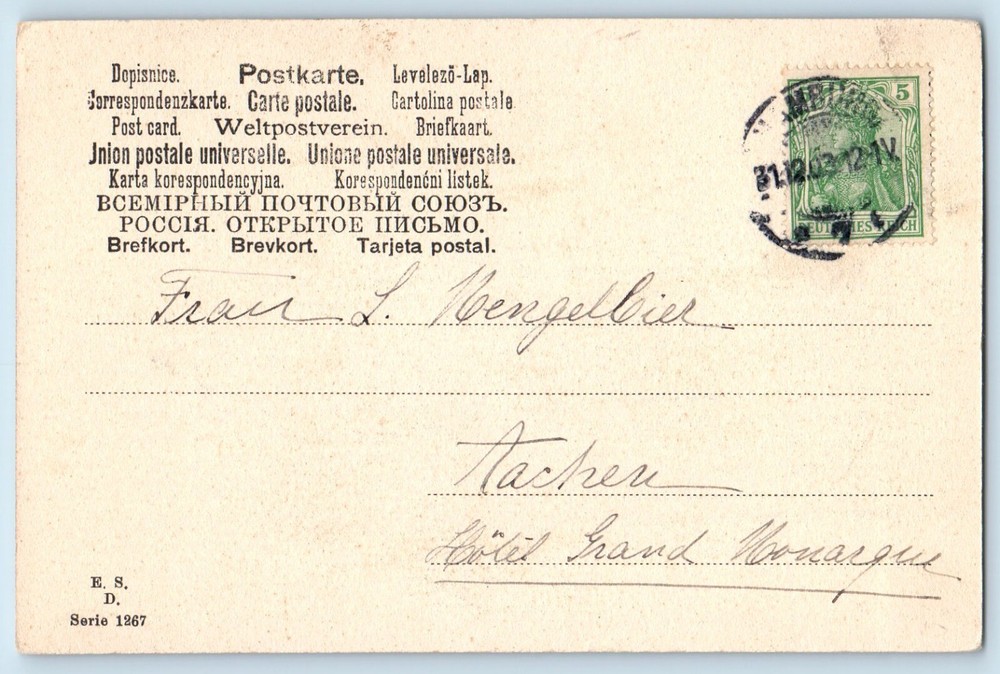 Dopisnice. Postkarte. Levelező-Lap.
Correspondenzkarte. Carte postale. Cartolina postale
Post card. Weltpostverein. Briefkaart.
Union postale universelle. Unione postale universale.
Karta korespondencyjna. Korespondenční listek.
ВСЕМІРНЫЙ ПОЧТОВЫЙ СОЮЗЪ.
РОССІЯ. ОТКРЫТОЕ ПИСЬМО.
Brefkort. Brevkort. Tarjeta postal.
5
HAMBURG
31.12.03 12-1V.
7
DEUTSCHES REICH
Frau L. Mengelbier
Aachen
Hôtel Grand Monarque
E. S.
D.
Serie 1267